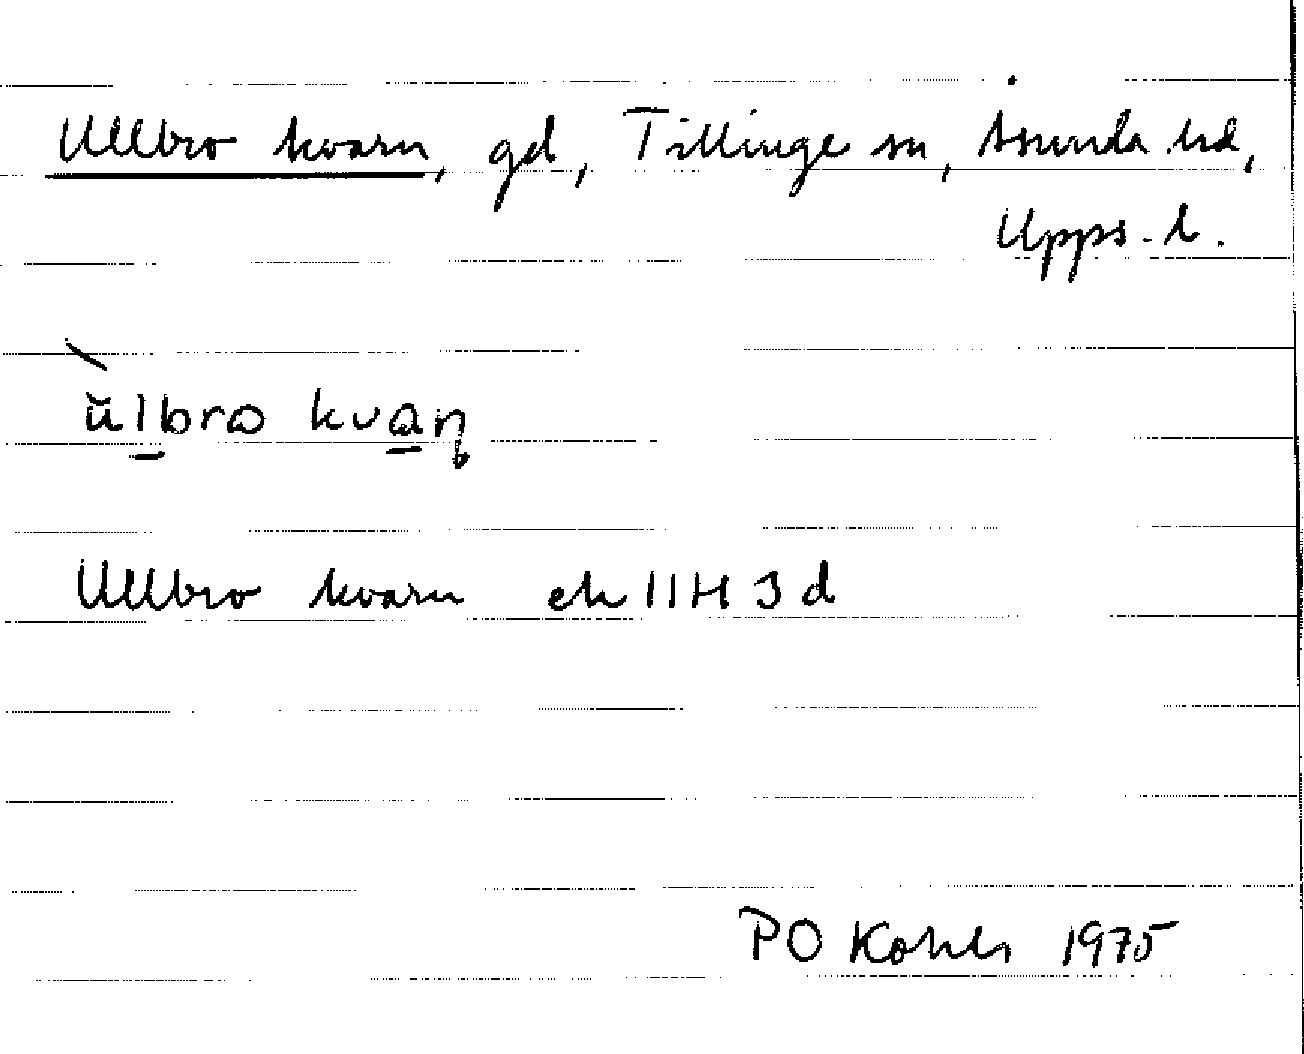 Ullbro kvarn, gd, Tillinge sn, Åsunda hd,
Upps. l.
ŭlbrω kvaɳ
Ullbro kvarn ek 11H 3d
PO 1975